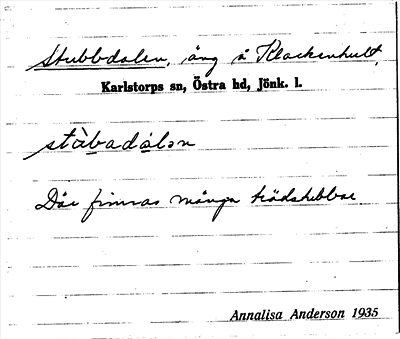 Stubbdalen, äng å Klockenhult,
Karlstorps sn, Östra hd, Jönk. l.
stùbadálən
Där finnas många trädstubbar
Annalisa Anderson 1935